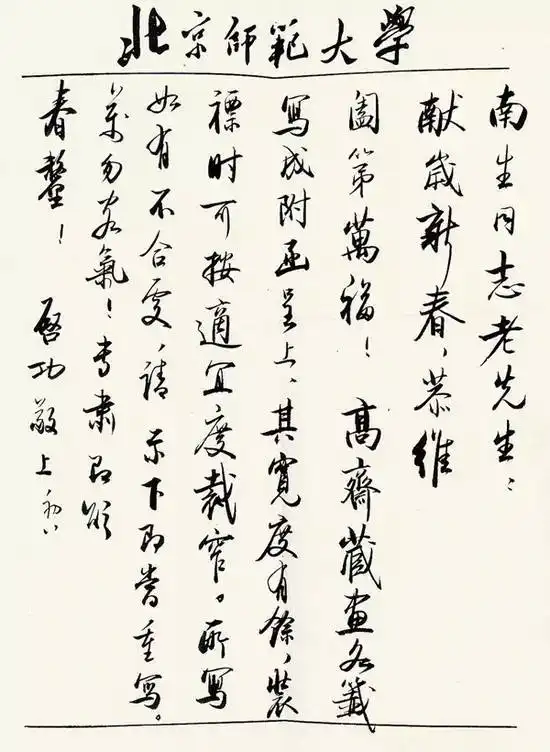 北京師範大學
南生同志老先生：
献歲新春，恭維
閤第萬福！高齋藏畫各籤
寫成附函呈上，其寬度有餘，裝
褾时可按適宜度裁窄。所寫
如有不合更，请示下即當重寫。
萬勿客氣！专肅即頌
春釐！
啓功敬上 初八